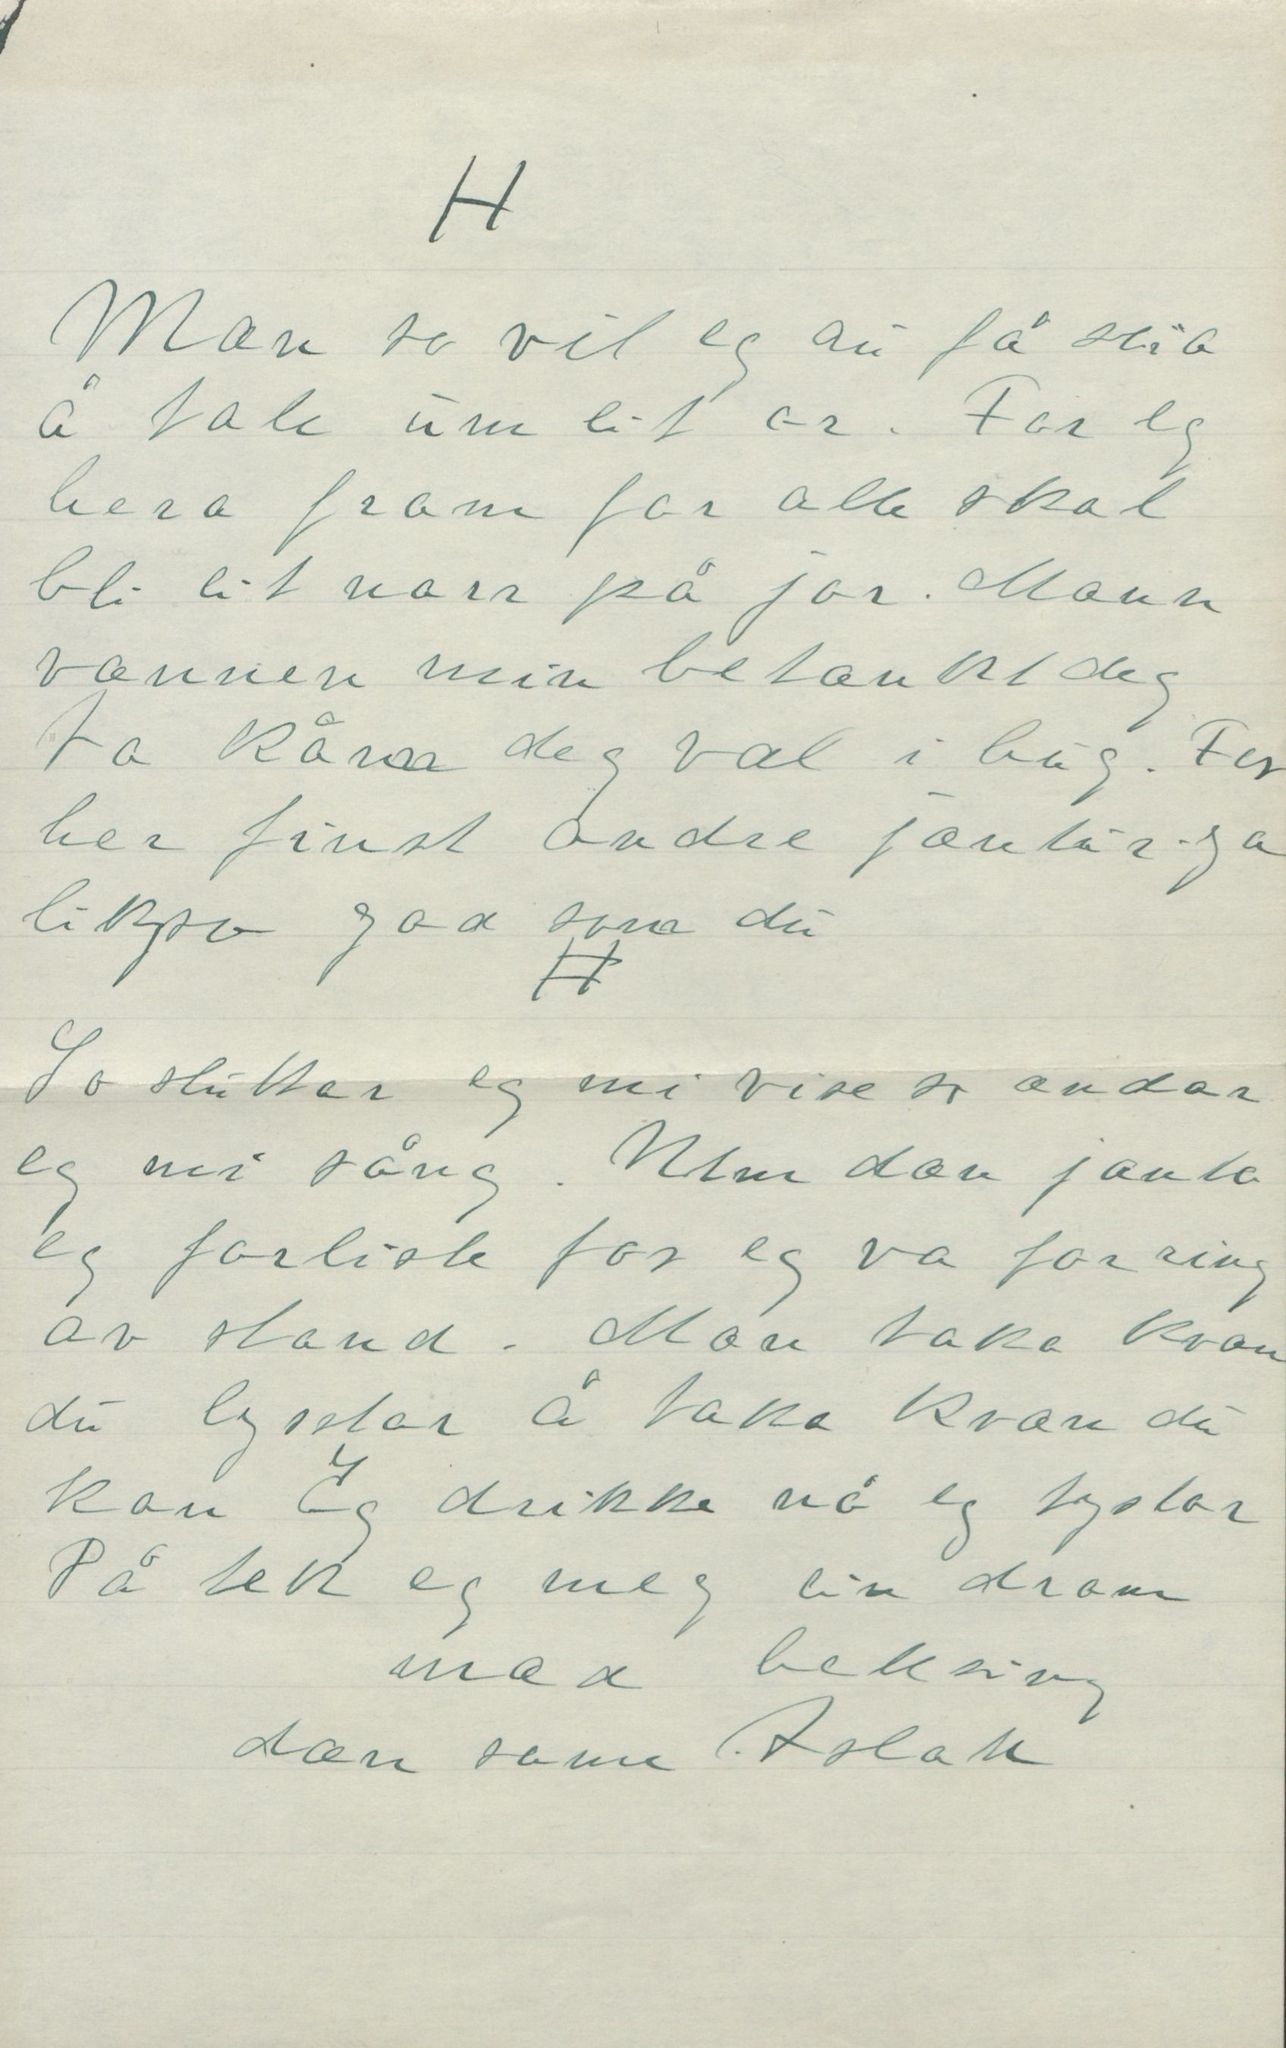 H
Mæn so vil eg nú få slia
å tale úm eit or. For eg
hera fram for alle skal
bli eit narr på jor. Mænn
vænnen min betænkt deg
ta kårer deg væl i húg. For
her finst andre jæntúr ga
likso god som dú
H
So slúttar eg mi vise so ændar
eg mi sång. Um dæn jænta
eg forliste for eg va for ring
av stand. Mæn taka kvæn
dú lystar å taka kvæn dú
kan Eg drikke nå eg tystar
På tek eg meg ein dram
mæd helksing
dæn same Aslak